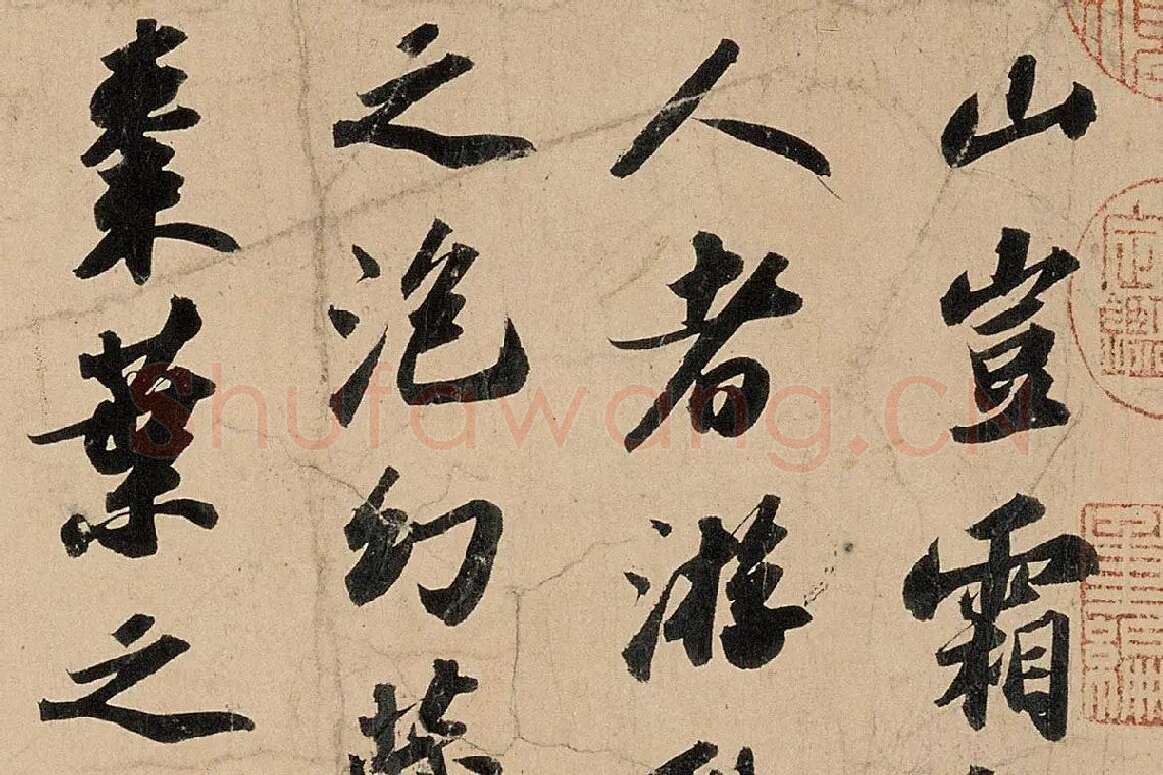 山豈霜
人者游
之泡幻
棗葉之
Shufawang.CN